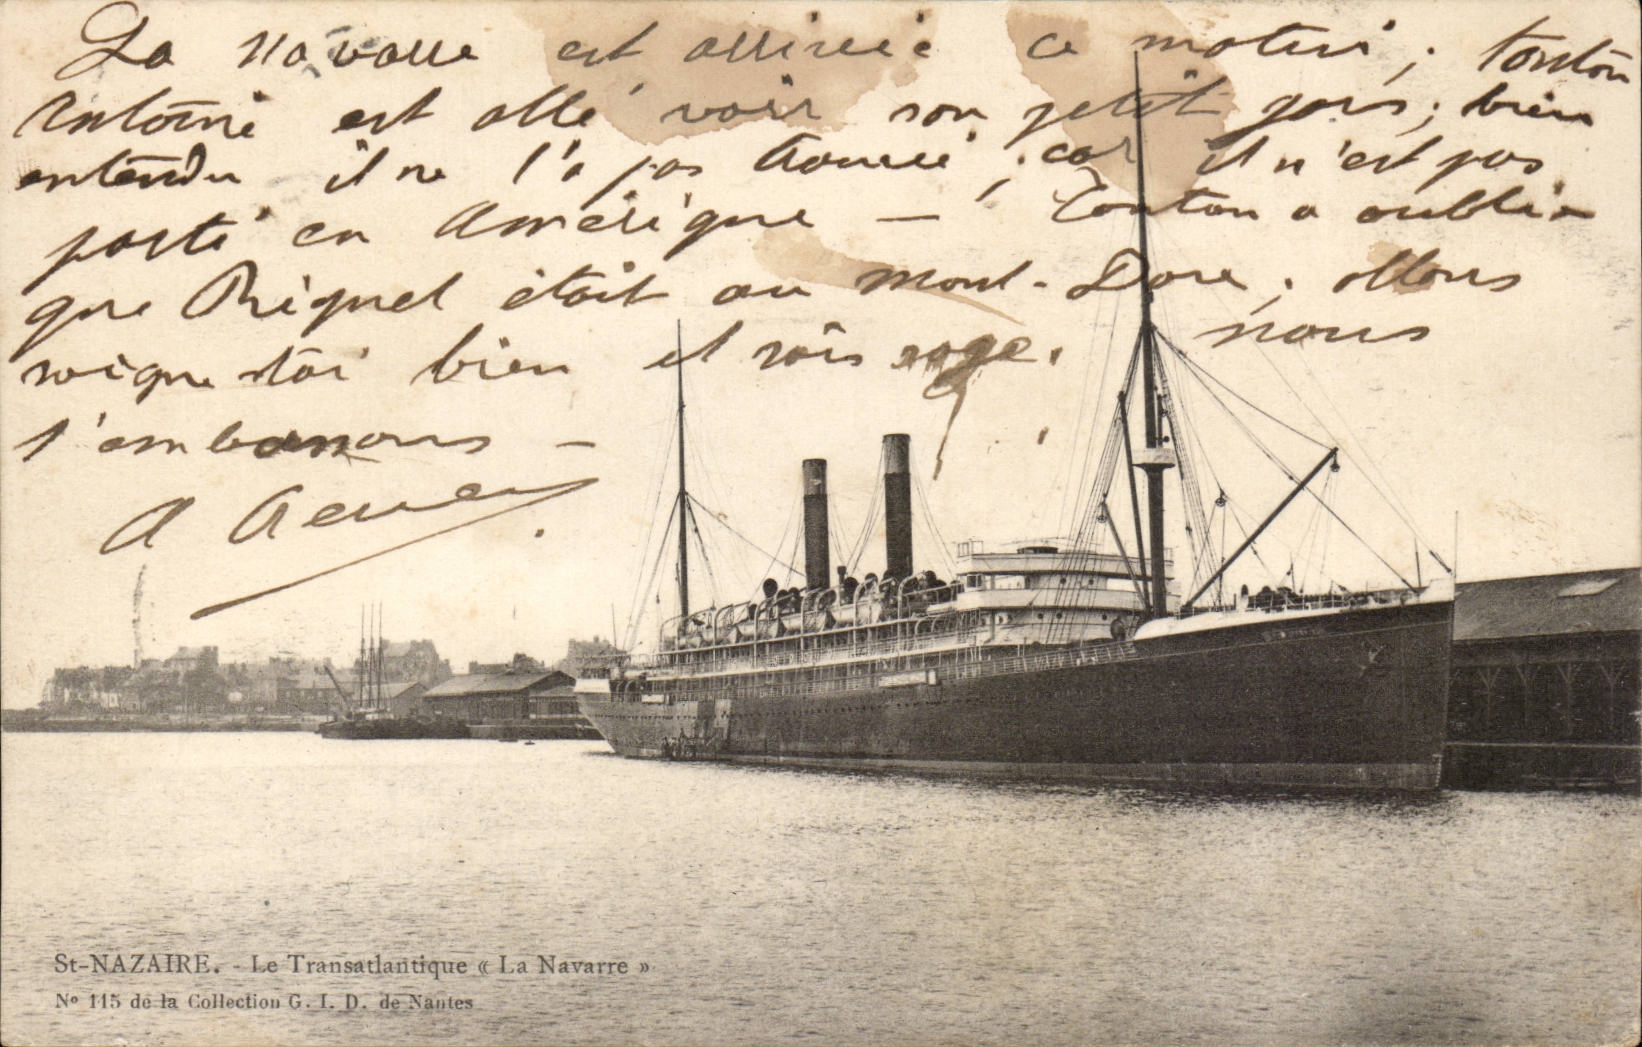 La Navarre est arrivée ce matin ; tonton
Antoine est allé voir son petit gars ; bien
entendu il ne l'a pas trouvé ; car il n'est pas
parti en Amérique — Tonton a oublié
que Riquel était au Mont-Dore ; allons
soigne toi bien et sois sage. nous
t'embrassons —
A
St-NAZAIRE. - Le Transatlantique « La Navarre »
No 115 de la Collection G. I. D. de Nantes